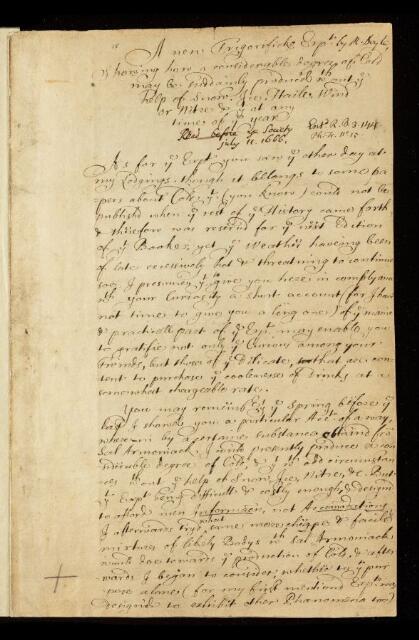 A new Frigorifick Expt. by R. Boyle,
shewing how a considerable degree of Cold
may be suddainly produc'd without ye
help of Snow, Ice, Haile, Wind
or Nitre & yt at any
time of ye year
Read before ye Society
July 11. 1666.
Ph: Tr. No. 15
As for ye Expt. you saw ye other day at
my Lodgings, though it belongs to some Pa-
pers about Cold, yt (you know) could not be
publish'd when ye rest of ye History came forth
& therefore was reserv'd for ye next Edition
of yt Booke; yet ye Weather haveing been
of late excessively hot & threatning to continue
soe, I presume ye give you here in complyance
wth your Curiosity a short account (for I have
not time to give you a long one) of ye maine
& practicable part of ye Expt. may enable you
to gratifie not only ye Curious among your
Friends, but those of ye Delicate, that are con-
tent to purchase ye coolenesse of drinks at a
somewhat chargeable rate.
You may remember yt ye Spring before ye
last I shewed you a particular Acct. of a way,
wherein by a certaine substance obtained fro
Sal Armoniack, I could presently produce a con-
siderable degree of Cold, & yt wth odd circumstan-
ces without ye help of Snow, Ice, Nitre, &c. But
yt Expt. being difficult & costly enough, & design'd
to afford men Information, not Accomodations,
I afterwards try'd what some more cheape & facile
mixtures of likely Bodys wth Sal Armoniack
would doe towards ye production of Cold, & after-
wards I began to consider, whether to yt pur-
pose alone (for my first mentiond Expt. was
design'd to exhibit other Phænomena too)